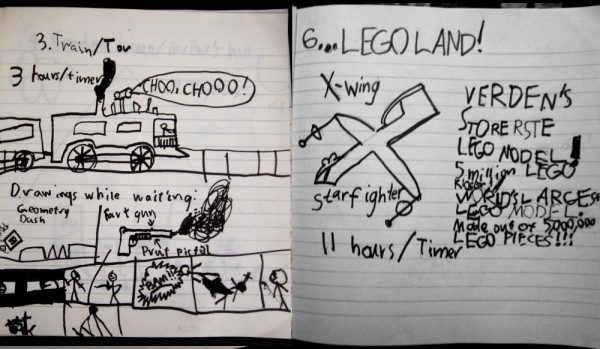 3. Train/Tov
3 hours/timer
CHOO, CHOOO!
R
Drawings while waiting:
Geometry
Dash
Fart gun
Prut pistol
BAM!!
6...LEGOLAND!
X-wing
starfighter
11 hours/Timer
VERDEN'S
STORERSTE
LEGO MODEL!
5 million LEGO
klodser
WORLD'S LARGEST
LEGO MODEL.
Made out of 5000,000
LEGO PIECES!!!